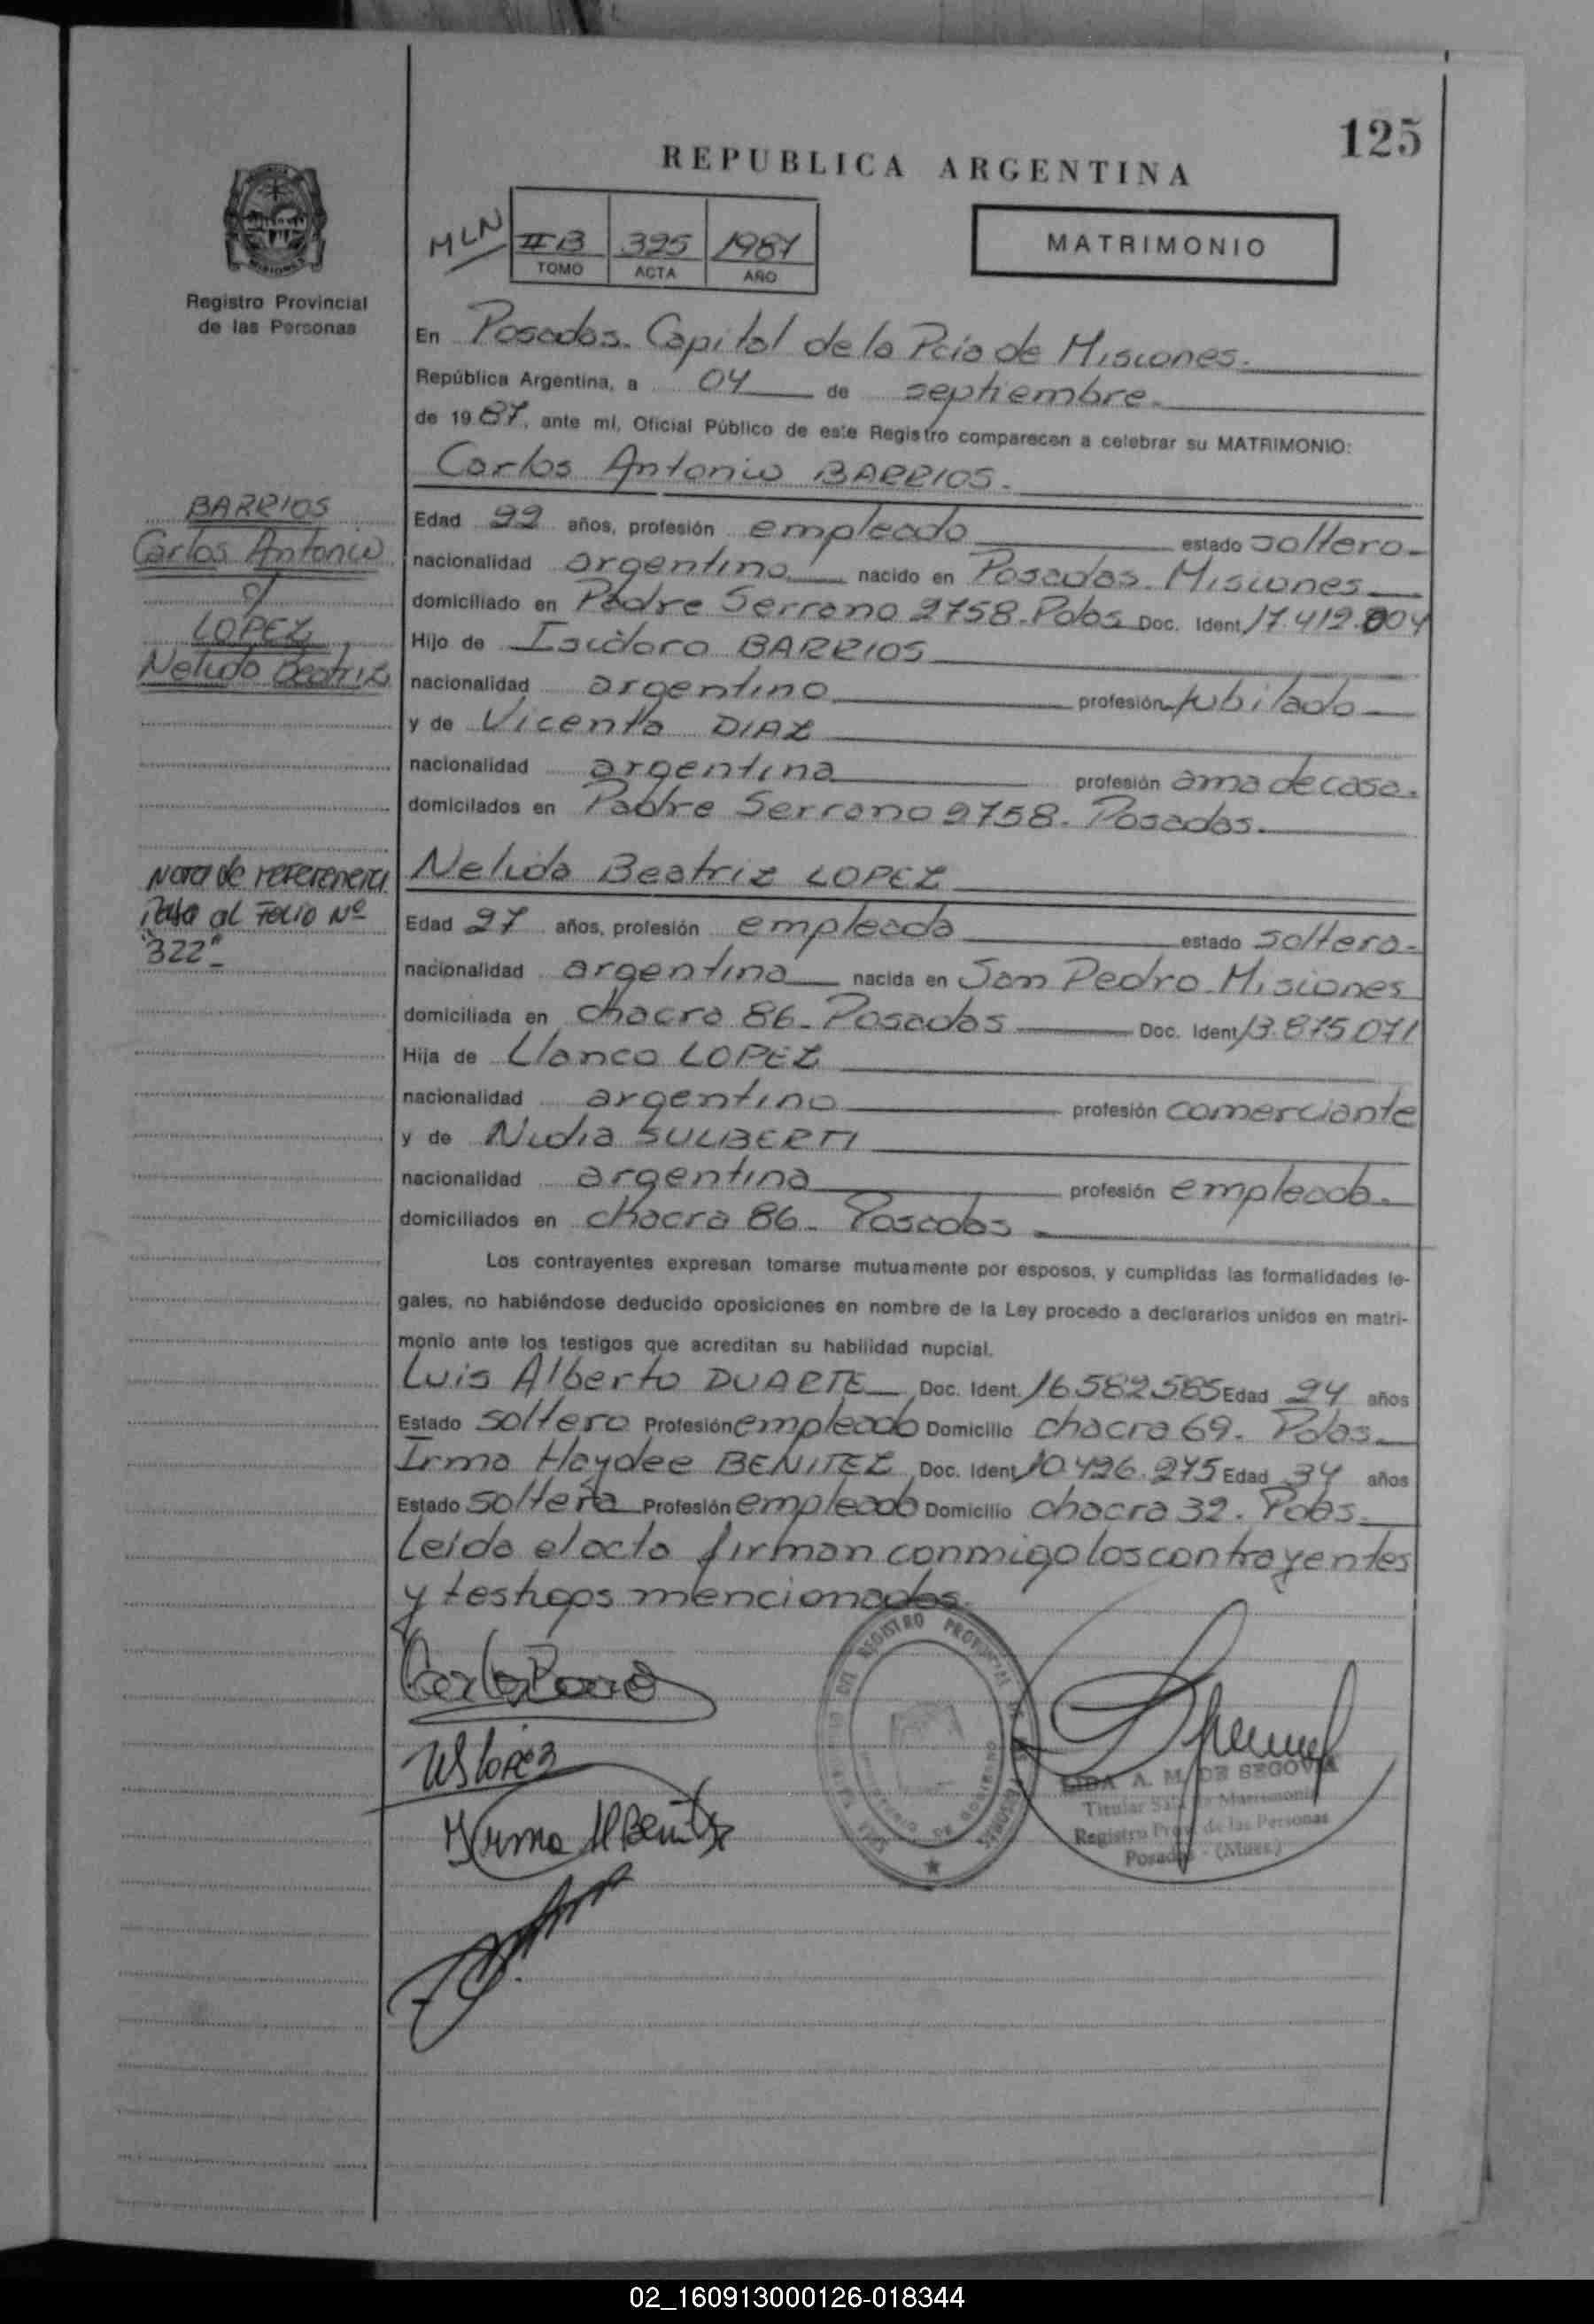 125
REPUBLICA ARGENTINA
MLN
II B 395 1987
TOMO ACTA AÑO
MATRIMONIO
Registro Provincial
de las Personas
En Posadas. Capital de la Pcia de Misiones.
República Argentina, a 04 de septiembre.
de 1987, ante mí, Oficial Público de este Registro comparecen a celebrar su MATRIMONIO:
Carlos Antonio BARRIOS.
Edad 22 años, profesión empleado estado soltero.
nacionalidad argentino nacido en Posadas. Misiones
domiciliado en Padre Serrano 2758. Pdas Doc. Ident. 17.412.804
Hijo de Isidoro BARRIOS
nacionalidad argentino profesión jubilado
y de Vicenta DIAZ
nacionalidad argentina profesión ama de casa.
domicilados en Padre Serrano 2758. Posadas.
Nelida Beatriz LOPEZ
Edad 27 años, profesión empleada estado soltera.
nacionalidad argentina nacida en San Pedro Misiones
domiciliada en chacra 86. Posadas Doc. Ident. 13.875.071
Hija de Llanco LOPEZ
nacionalidad argentino profesión comerciante
y de Nidia SULIBERTI
nacionalidad argentina profesión empleada.
domiciliados en chacra 86. Posadas
Los contrayentes expresan tomarse mutuamente por esposos, y cumplidas las formalidades le-
gales, no habiéndose deducido oposiciones en nombre de la Ley procedo a declararlos unidos en matri-
monio ante los testigos que acreditan su habilidad nupcial.
Luis Alberto DUARTE Doc. Ident. 16.582.585 Edad 24 años
Estado soltero Profesión empleado Domicilio chacra 69. Pdas.
Irma Haydee BENITEZ Doc. Ident. 10.426.275 Edad 34 años
Estado soltera Profesión empleada Domicilio chacra 32. Pdas.
Leída el acta firman conmigo los contrayentes
y testigos mencionados.
BARRIOS
Carlos Antonio
c/
LOPEZ
Nelida Beatriz
Nota de referencia
pasa al Folio Nº
"322"
López
Irma H Benitez
REGISTRO PROVINCIAL DE LAS PERSONAS
MINISTERIO DE GOBIERNO
LIDA A. M. DE SEGOVIA
Titular Sala de Matrimonio
Registro Prov. de las Personas
Posadas - (Mnes.)
02_160913000126-018344